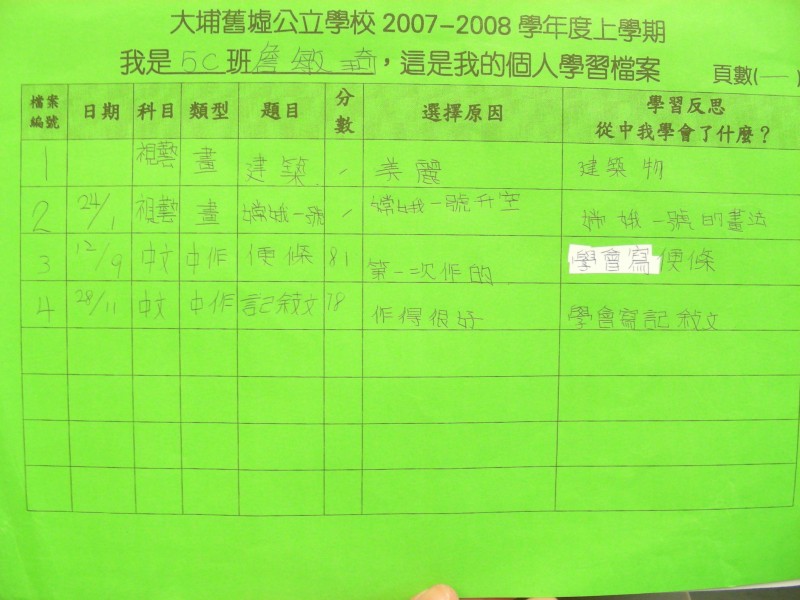 大埔舊墟公立學校 2007-2008 學年度上學期
我是 5C 班詹敏琦，這是我的個人學習檔案 頁數(一)
檔案編號 日期 科目 類型 題目 分數 選擇原因 學習反思 從中我學會了什麼？
1 視藝 畫 建築 / 美麗 建築物
2 24/1 視藝 畫 嫦娥一號 / 嫦娥一號升空 嫦娥一號的畫法
3 12/9 中文 中作 便條 81 第一次作的 學會寫便條
4 28/11 中文 中作 記敍文 78 作得很好 學會寫記敍文